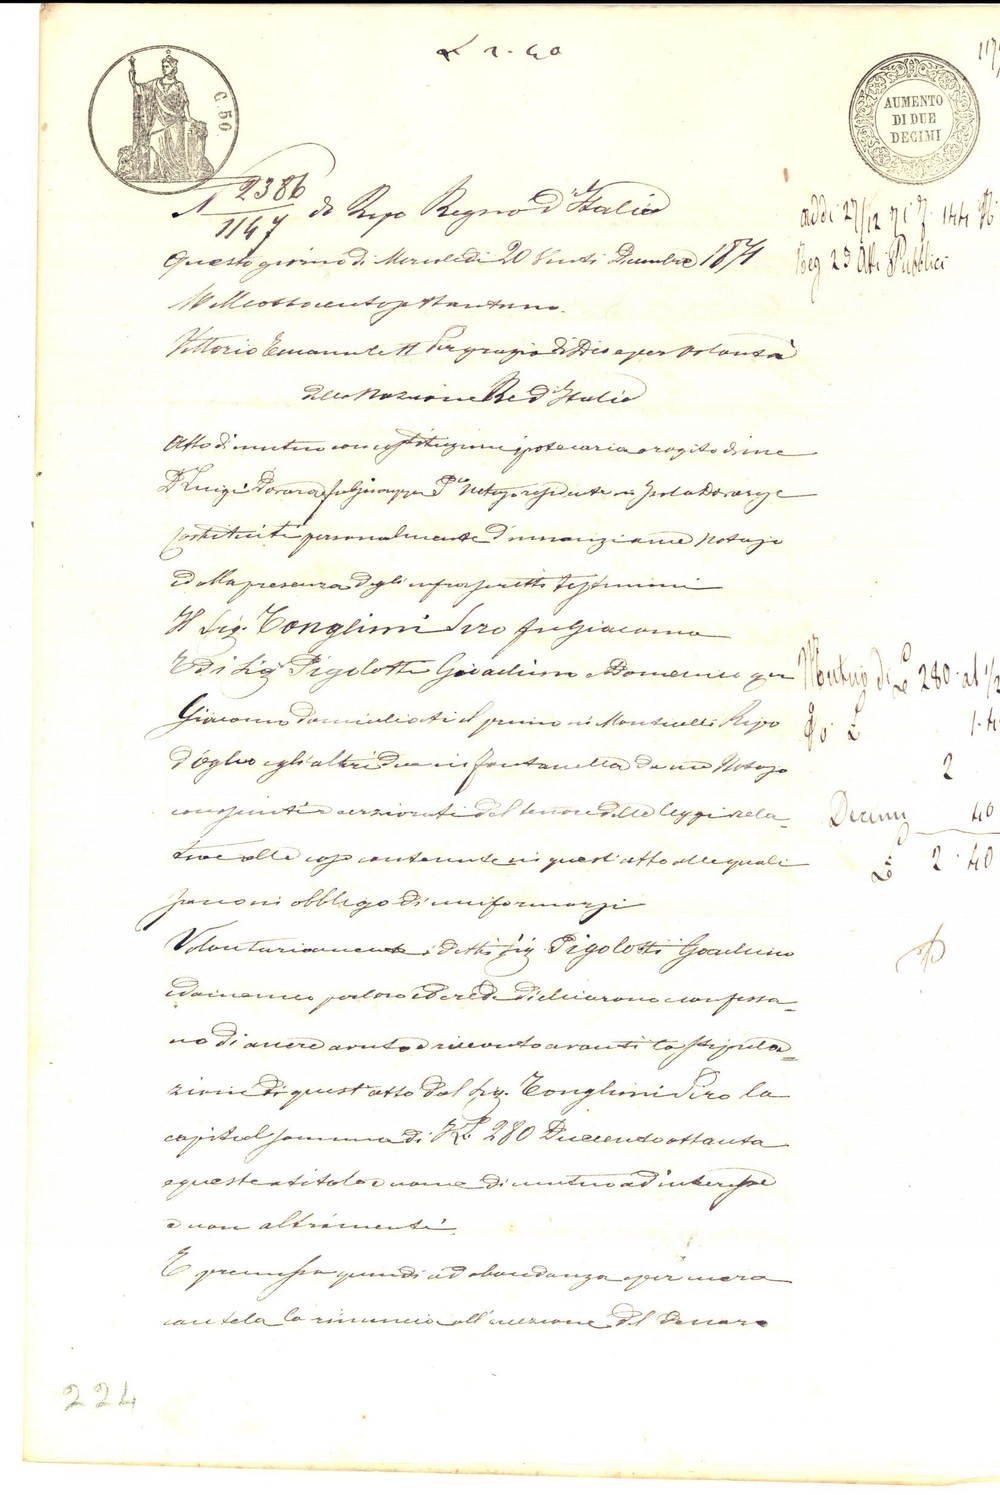 £ 2.40
C. 50
AUMENTO
DI DUE
DECIMI
N 2386
1147 di Rep° Regno d'Italia
addi 27/12 71
Reg 25 Atti Pubblici
Questo giorno di Mercoledi 20 Venti Dicembre 1871
Milleottocentosettantuno.
Vittorio Emanuele II Per grazia di Dio e per volontà
della Nazione Re d'Italia
Atto di mutuo con costituzione ipotecaria a rogito di me
Dr Luigi fu Giuseppe Notajo residente in Isola Dovarese
Costituiti personalmente dinnanzi a me Notajo
ed alla presenza degli infrascritti testimoni
Il Sig. Tonghini Siro fu Giacomo
Ed i Sig.i Pigolotti Gioachino e Domenico qm
Giacomo domiciliati il primo in Monticelli Ripa
d'Oglio e gli altri due in Fontanella da me Notajo
conosciuti e cerziorati del tenore delle leggi rela-
tive alle cose contenute in quest'atto alle quali
fanno obbligo di uniformarsi
Volontariamente i detti Sig. Pigolotti Gioachino
e Domenico per loro ed eredi dichiarono e confessa-
no di avere avuto e ricevuto avanti la stipula-
zione di quest'atto dal Sig. Tonghini Siro la
capital somma di £ 280 Duecentoottanta
e queste a titolo e nome di mutuo ad interesse
e non altrimenti.
E premessa quindi ad abbondanza e per mera
cautela la rinuncia all'eccezione del denaro
Mutuo di £ 280 al
2
Decimi 40
2.40
224